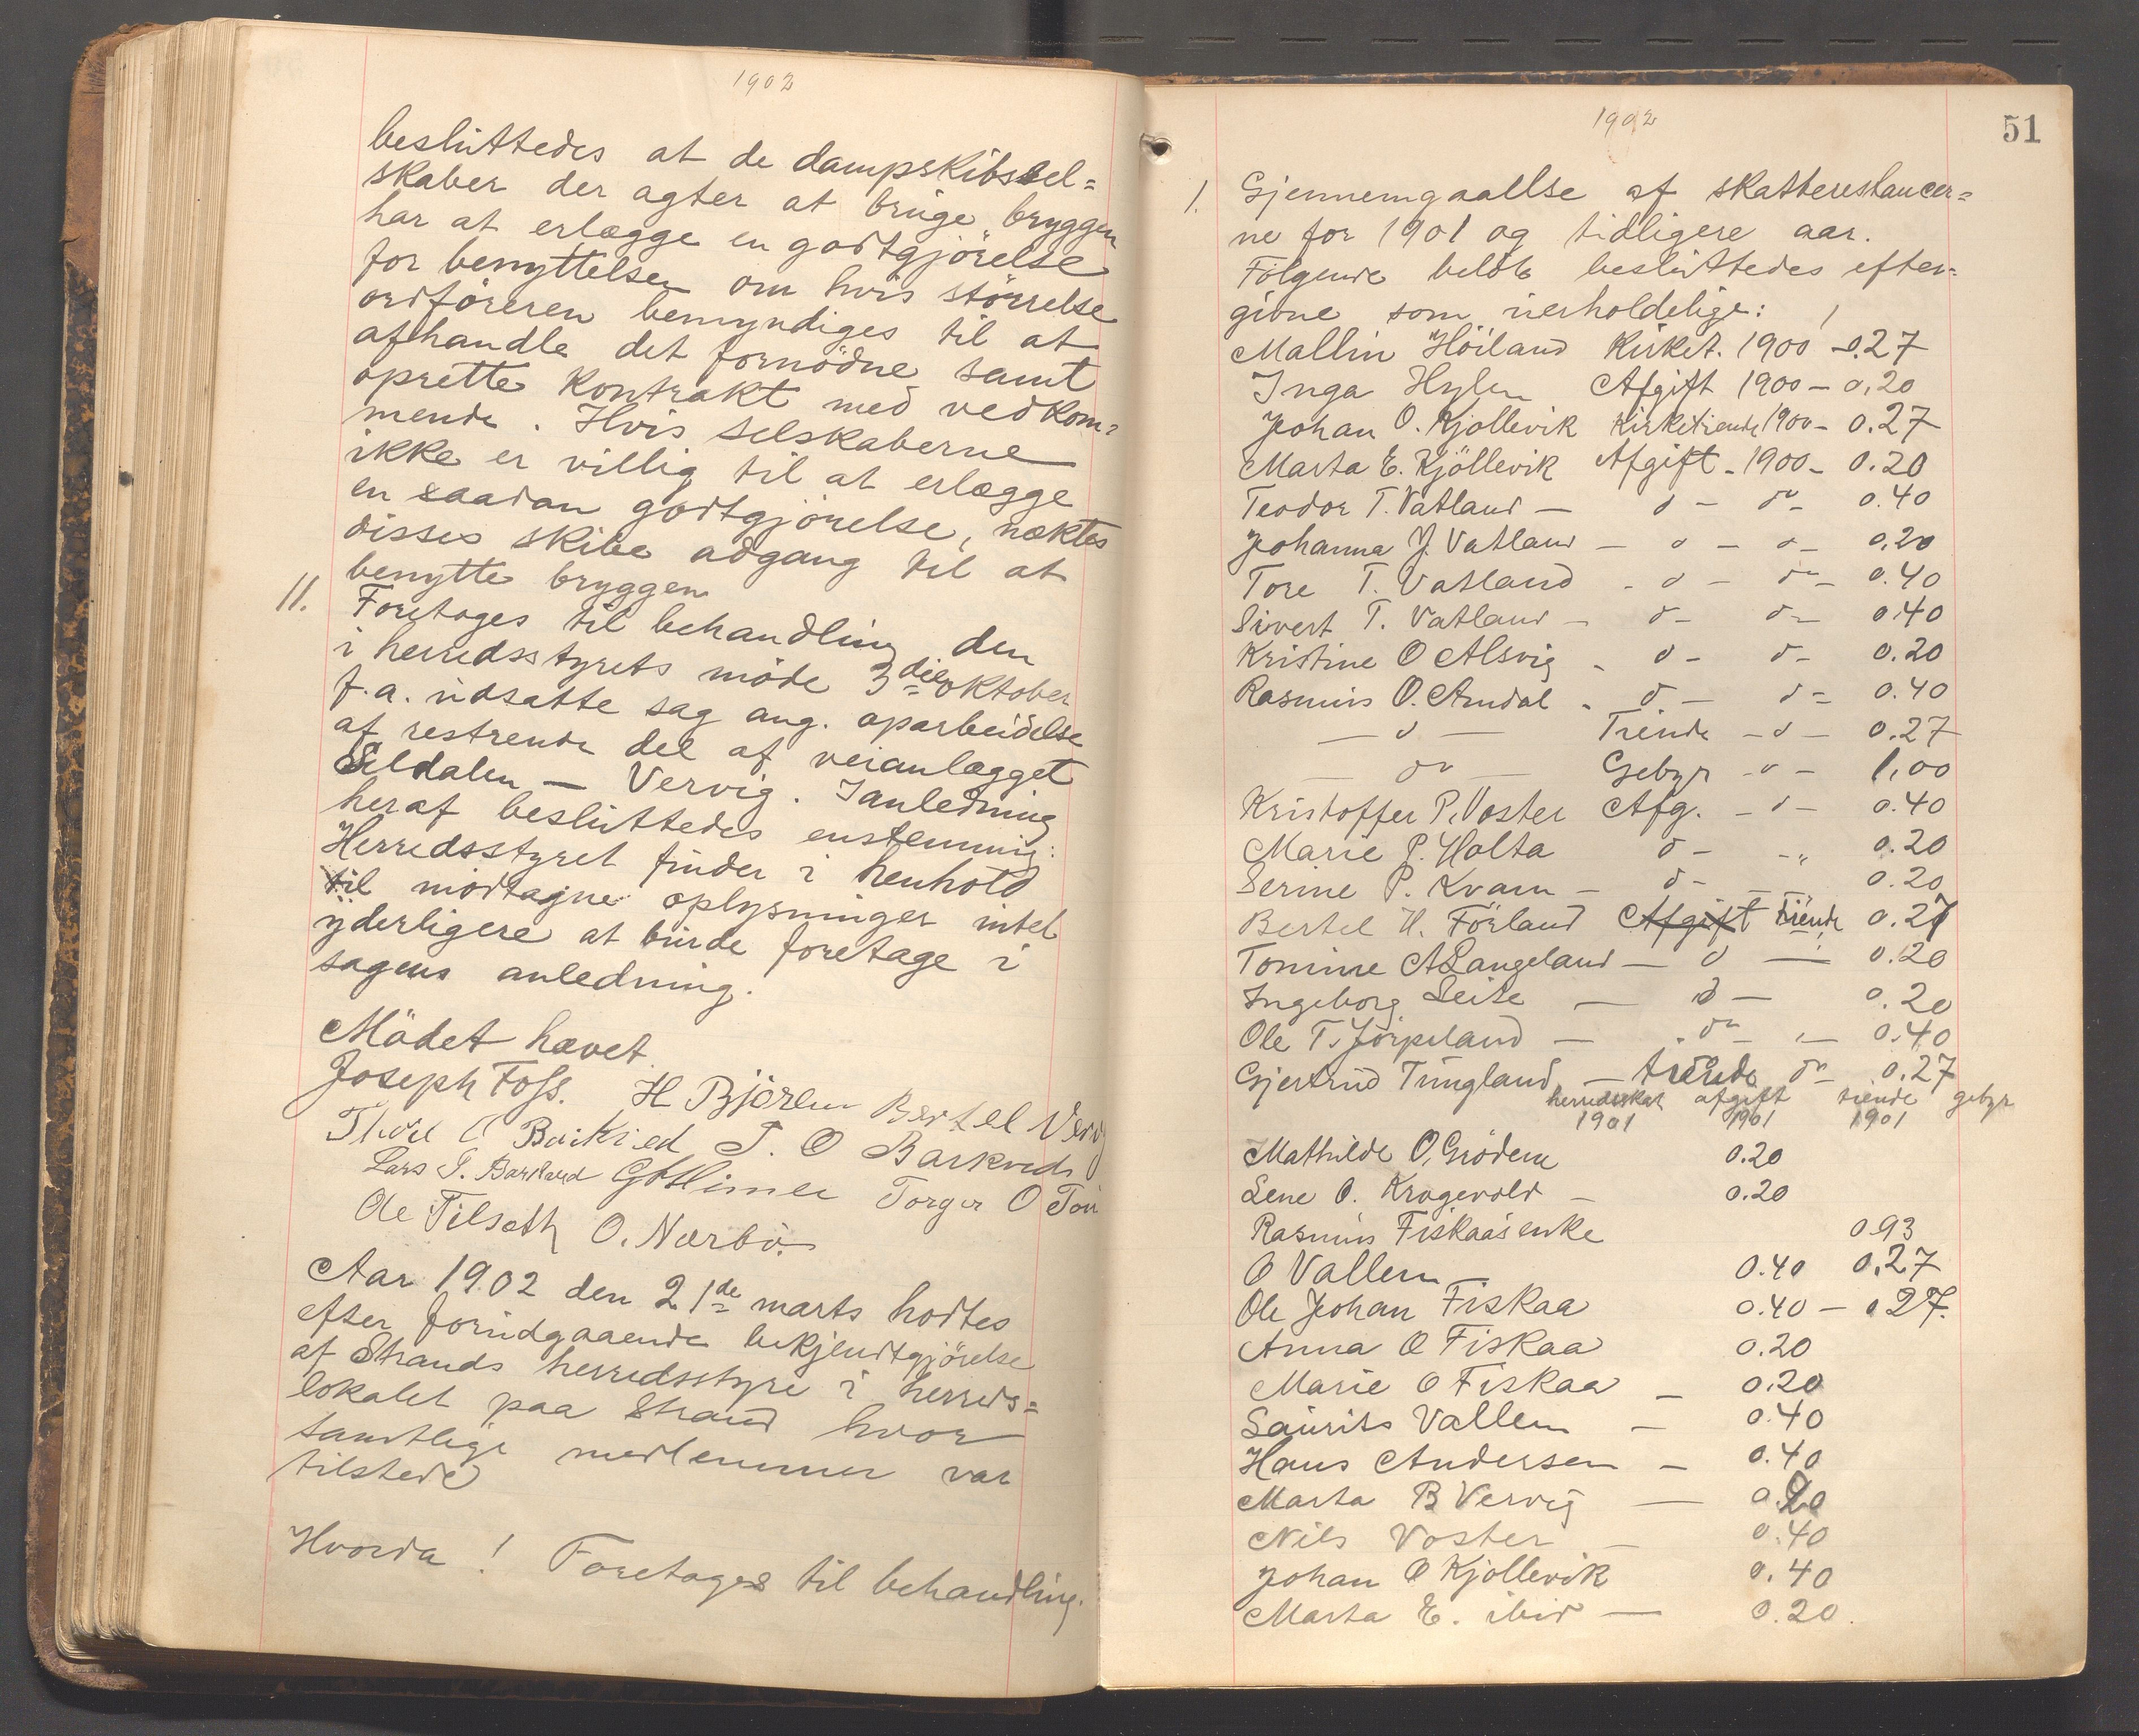 1902
besluttedes at de dampskibssel=
skaber der agter at bruge bryggen
har at erlægge en godtgjörelse
for benyttelsen om hvis störrelse
ordföreren bemyndiges til at
afhandle det fornödne samt
oprette kontrakt med vedkom=
mende. Hvis selskaberne
ikke er villig til at erlægge
en saadan godtgjörelse, næktes
disses skibe adgang til at
benytte bryggen
11. Foretoges til behandling den
i herredsstyrets möde 3die oktober
f.a. udsatte sag ang. oparbeidelse
af restrende del af veianlægget
Seldalen — Vervig. I anledning
heraf besluttedes enstemmig:
Herredsstyret finder i henhold
til modtagne oplysninger intet
yderligere at burde foretage i
sagens anledning.
Mödet hævet
Joseph Foss. H Björheim Bertel Vervig
Thore O Barkved T. O Barkved
Lars S. Barkland G Hlimen Torger O Tou
Ole Tilseth O. Nærbö.
Aar 1902 den 21de marts holdtes
efter forudgaaende bekjendtgjörelse
af Strands herredsstyre i herreds=
lokalet paa Strand hvor
samtlige medlemmer var
tilstede
Hvorda! Foretoges til behandling.
1902
51
1. Gjennemgaallse af skatterestancer=
ne for 1901 og tidligere aar.
Fölgende belöb besluttedes efter=
givne som uerholdelige:
Mallin Höiland Kirket. 1900 - 0.27
Inga Hylen Afgift 1900 - 0.20
Johan O. Kjollevik Kirketiende 1900 - 0.27
Marta E. Kjöllevik Afgift - 1900 - 0.20
Teodor T. Vatland — d - do - 0.40
Johanna J. Vatland — d - d - 0.20
Tore T. Vatland - d - do - 0.40
Sivert T. Vatland - d - d - 0.40
Kristine O Alsvig - d - d - 0.20
Rasmus O. Amdal - d - d - 0.40
— d — Tiende - d - 0.27
— do — Gebyr - d - 1,00
Kristoffer P. Voster Afg. - d - 0.40
Marie P. Holta d - - „ 0.20
Serine P. Kvam - d - - „ 0.20
Bertel H. Förland Afgift Tiende 0.27
Tomine A Langeland — d — 0.20
Ingeborg Leite — d — 0.20
Ole T. Jörpeland — do - - 0.40
Gjertrud Tungland — tiende do - 0.27
herredsskat afgift tiende gebyr
1901 1901 1901
Mathilde O. Grödem 0.20
Lene O. Kragevold - 0.20
Rasmus Fiskaas enke 0.93
O Vallem 0.40 0.27
Ole Johan Fiskaa 0.40 - 0.27.
Anna O Fiskaa 0.20
Marie O Fiskaa - 0.20
Laurits Vallem - 0.40
Hans Andersen - 0.40
Marta B Vervig — 0.20
Nils Voster - 0.40
Johan O Kjollevik 0.40
Marta E. ibid — 0.20.